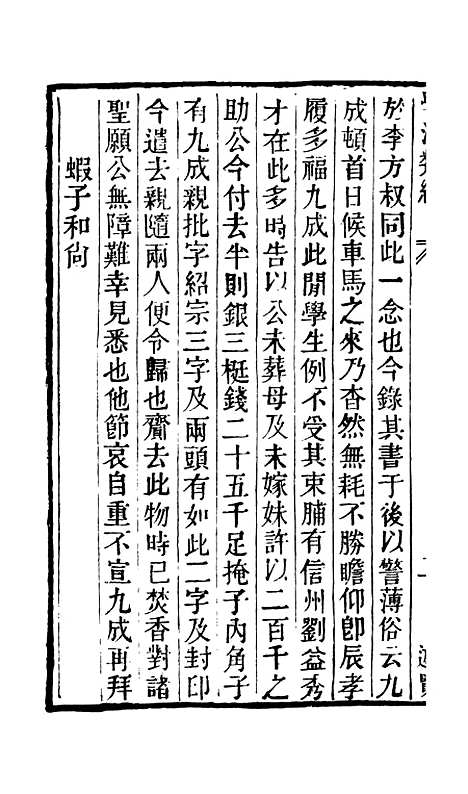 於李方叔同此一念也今錄其書于後以警薄俗云九
成頓首日候車馬之來乃杳然無耗不勝瞻仰卽辰孝
履多福九成此閒學生例不受其束脯有信州劉益秀
才在此多時告以公未葬母及未嫁妹許以二百千之
助公今付去半則銀三梃錢二十五千足掩子內角子
有九成親批字紹宗三字及兩頭有如此二字及封印
今遣去親隨兩人便令歸也齎去此物時已焚香對諸
聖願公無障難幸見悉也他節哀自重不宣九成再拜
蝦子和尙